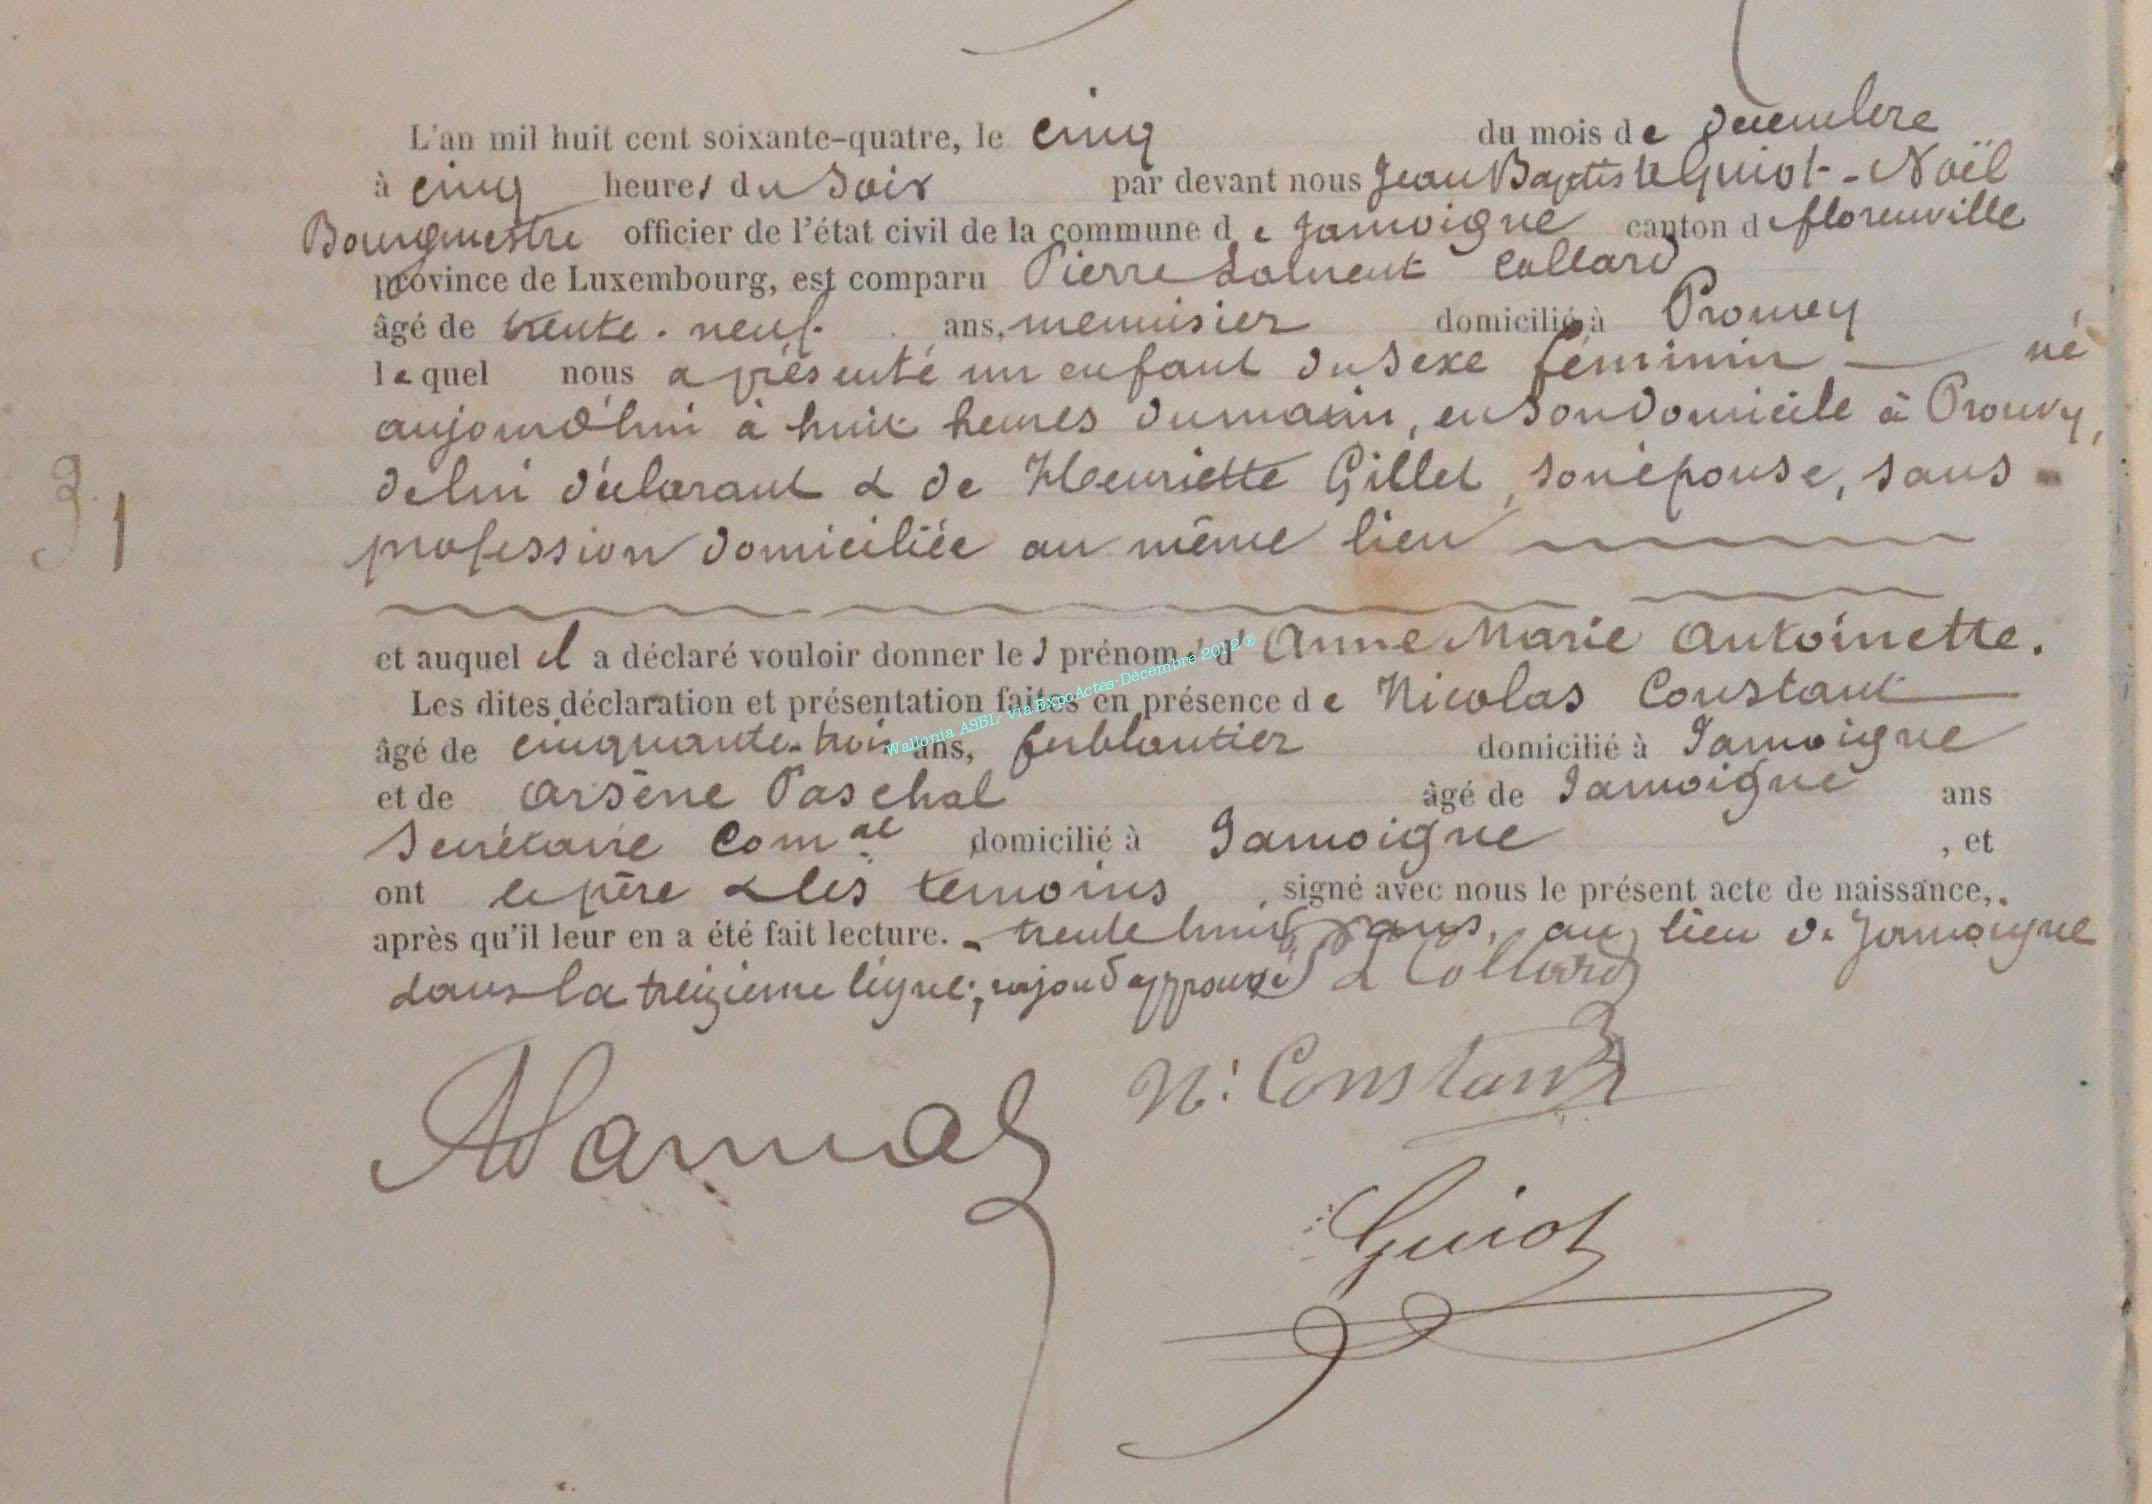 L'an mil huit cent soixante-quatre, le cinq du mois de Décembre
à cinq heures du Soir par devant nous Jean Baptiste Guiot-Noël
Bourgmestre officier de l'état civil de la commune de Jamoigne canton de florenville
province de Luxembourg, est comparu Pierre Laurent Collard
âgé de trente-neuf ans, menuisier domicilié à Prouvy
lequel nous a présenté un enfant du Sexe féminin — né
aujourd'hui à huit heures du matin, en son domicile à Prouvy,
de lui déclarant & de Henriette Gillet, son épouse, sans
31
profession domiciliée au même lieu
et auquel il a déclaré vouloir donner les prénoms d'Anne Marie Antoinette.
Les dites déclaration et présentation faites en présence de Nicolas Constant
Wallonia ASBL, via ExpoActes-Décembre 2012 ©
âgé de cinquante-trois ans, ferblantier domicilié à Jamoigne
et de Arsène Paschal âgé de Jamoigne ans
Secrétaire Com.al domicilié à Jamoigne , et
ont le père & les temoins , signé avec nous le présent acte de naissance,
après qu'il leur en a été fait lecture. - trente huit ans, au lieu de Jamoigne
dans la treizieme ligne; rajout approuvé L Collard
N: Constant
Guiot